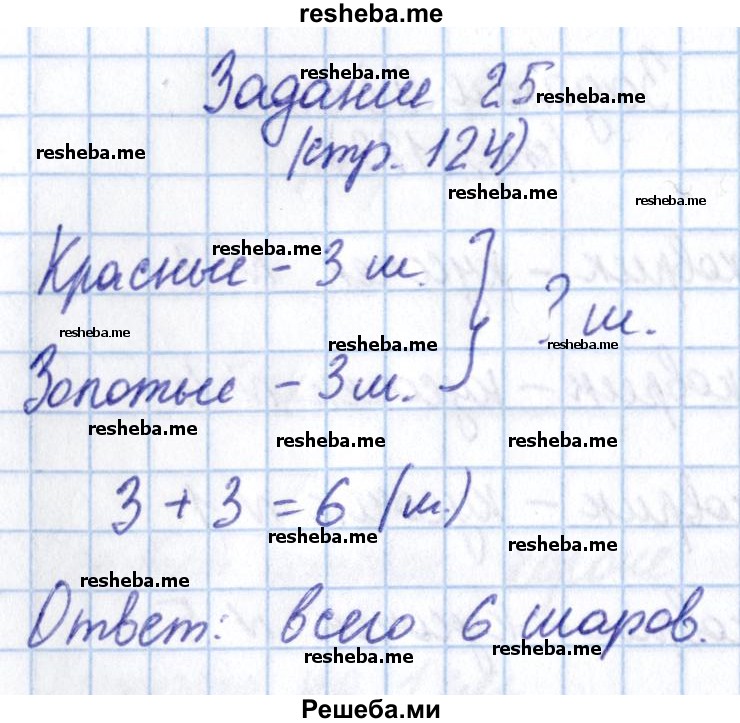 resheba.me
resheba.me
Задание 25
resheba.me
resheba.me
(стр. 124)
resheba.me
resheba.me
resheba.me
Красные - 3 ш.
? ш.
resheba.me
resheba.me
resheba.me
Золотые - 3 ш.
resheba.me
resheba.me
resheba.me
3 + 3 = 6 (ш.)
resheba.me
resheba.me
resheba.me
Ответ: всего 6 шаров.
resheba.me
resheba.me
Решеба.ми